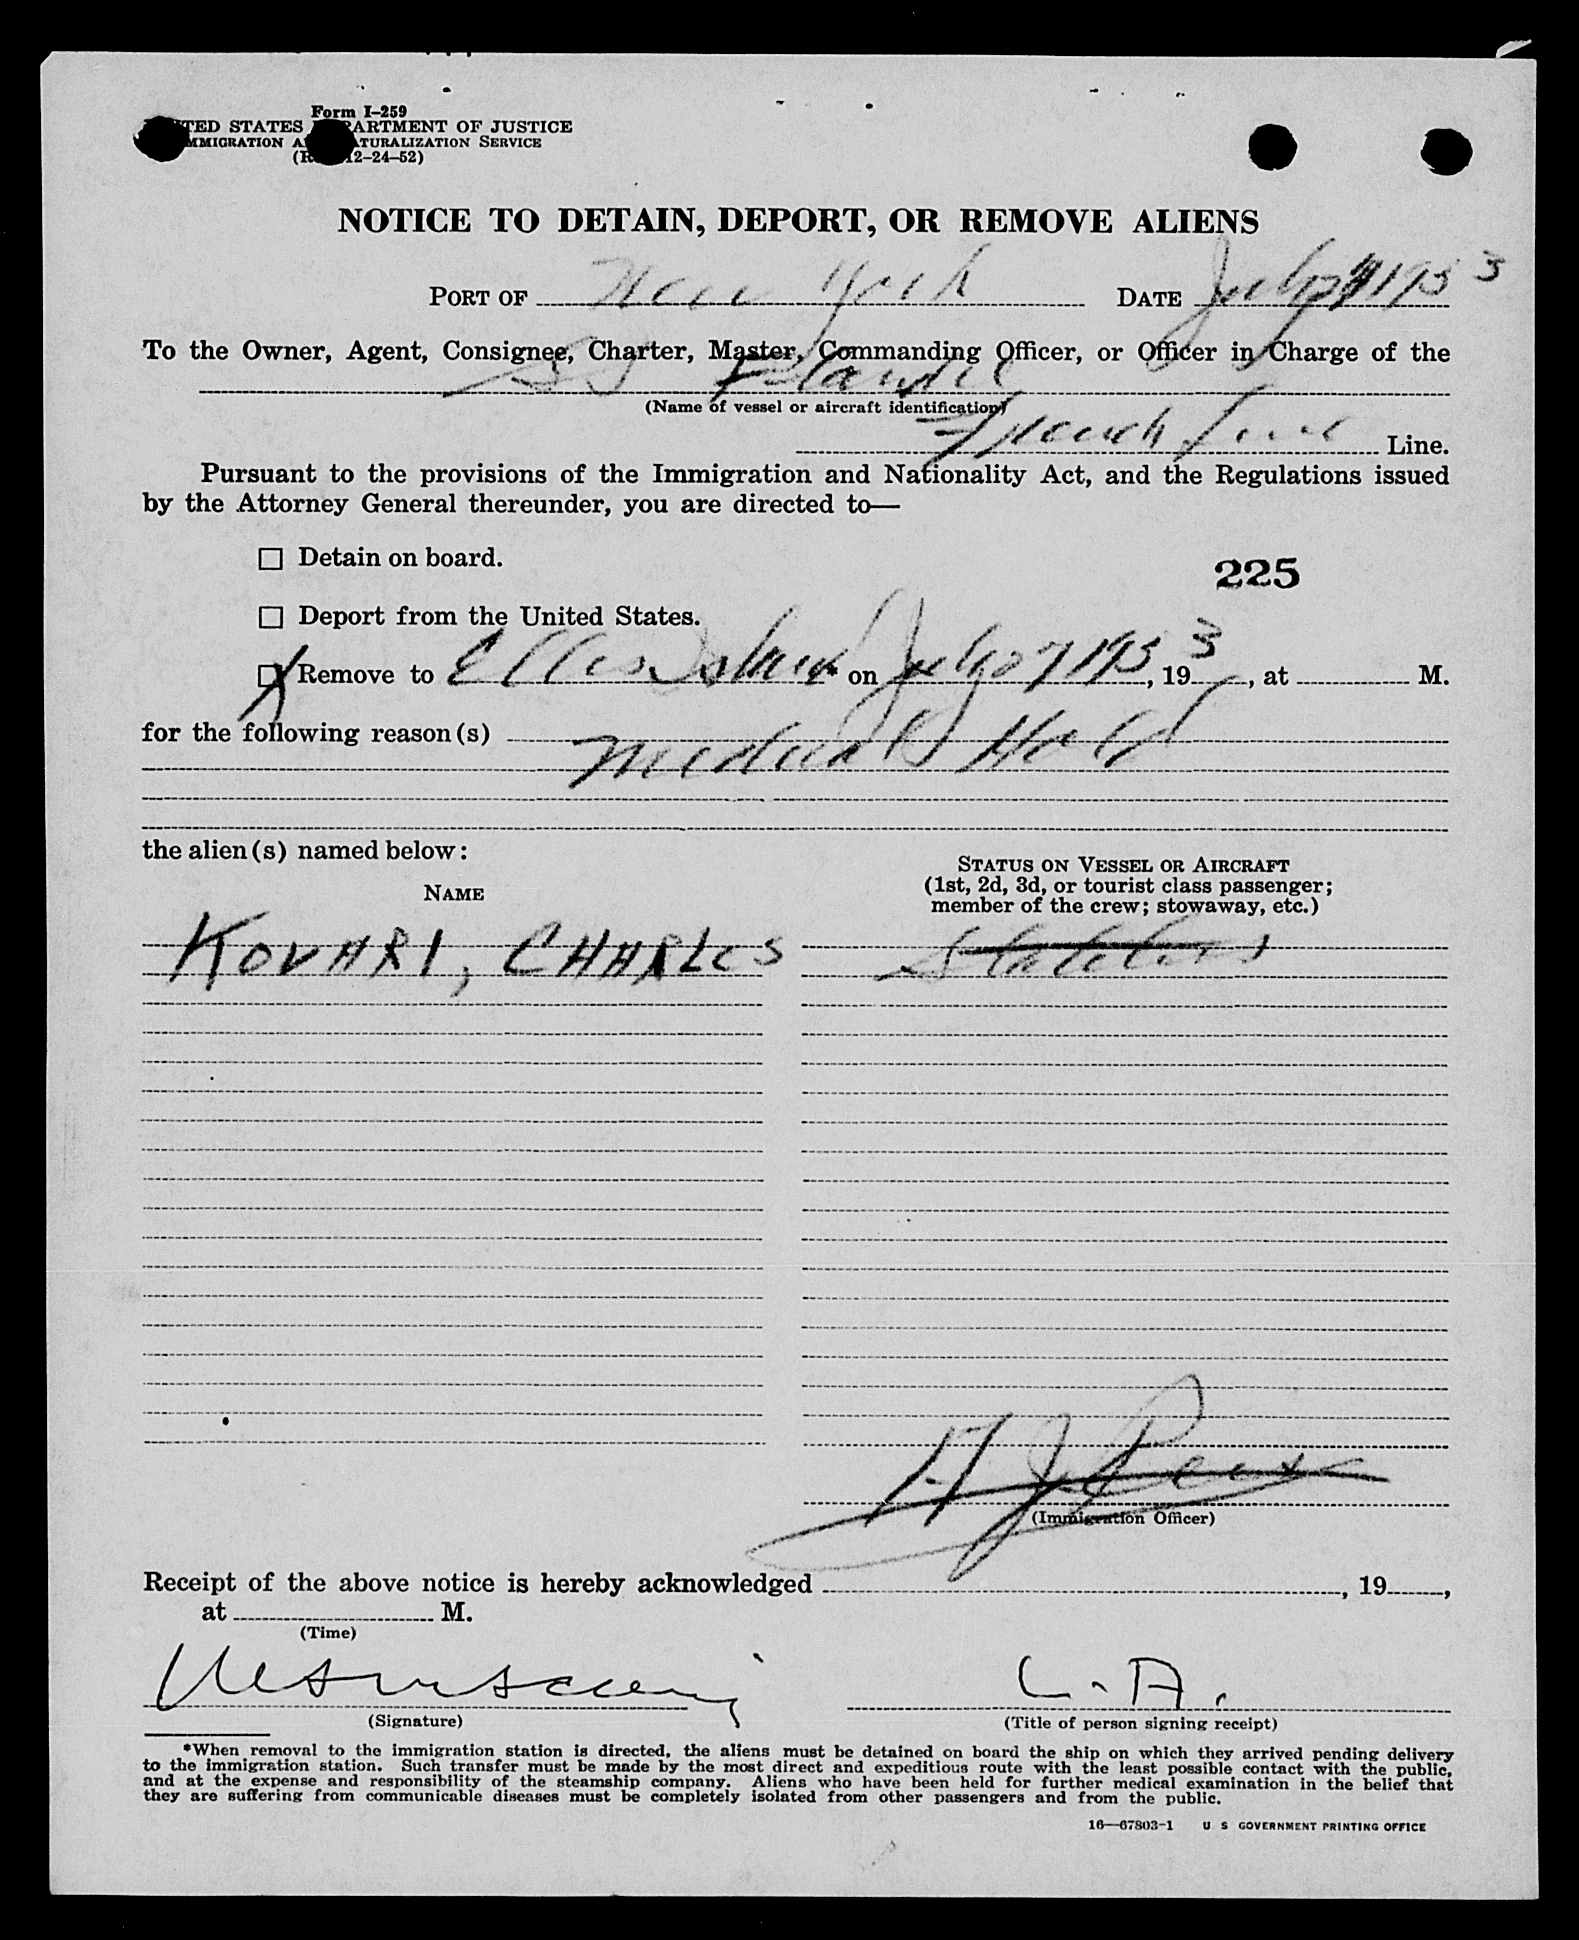 Form I-259
TED STATES PARTMENT OF JUSTICE
MMIGRATION A TURALIZATION SERVICE
(R 12-24-52)
NOTICE TO DETAIN, DEPORT, OR REMOVE ALIENS
PORT OF New York DATE July 1953
To the Owner, Agent, Consignee, Charter, Master, Commanding Officer, or Officer in Charge of the
SS Flandre
(Name of vessel or aircraft identification)
French Line Line.
Pursuant to the provisions of the Immigration and Nationality Act, and the Regulations issued
by the Attorney General thereunder, you are directed to—
☐ Detain on board.
225
☐ Deport from the United States.
☒ Remove to Ellis Island* on July 27 1953, 193, at M.
for the following reason(s)
Medical Hold
the alien(s) named below:
STATUS ON VESSEL OR AIRCRAFT
(1st, 2d, 3d, or tourist class passenger;
member of the crew; stowaway, etc.)
NAME
KOVARI, CHARLES
H J
(Immigration Officer)
Receipt of the above notice is hereby acknowledged , 19 ,
at M.
(Time)
L.A.
(Signature) (Title of person signing receipt)
*When removal to the immigration station is directed, the aliens must be detained on board the ship on which they arrived pending delivery
to the immigration station. Such transfer must be made by the most direct and expeditious route with the least possible contact with the public,
and at the expense and responsibility of the steamship company. Aliens who have been held for further medical examination in the belief that
they are suffering from communicable diseases must be completely isolated from other passengers and from the public.
16—67803-1 U S GOVERNMENT PRINTING OFFICE